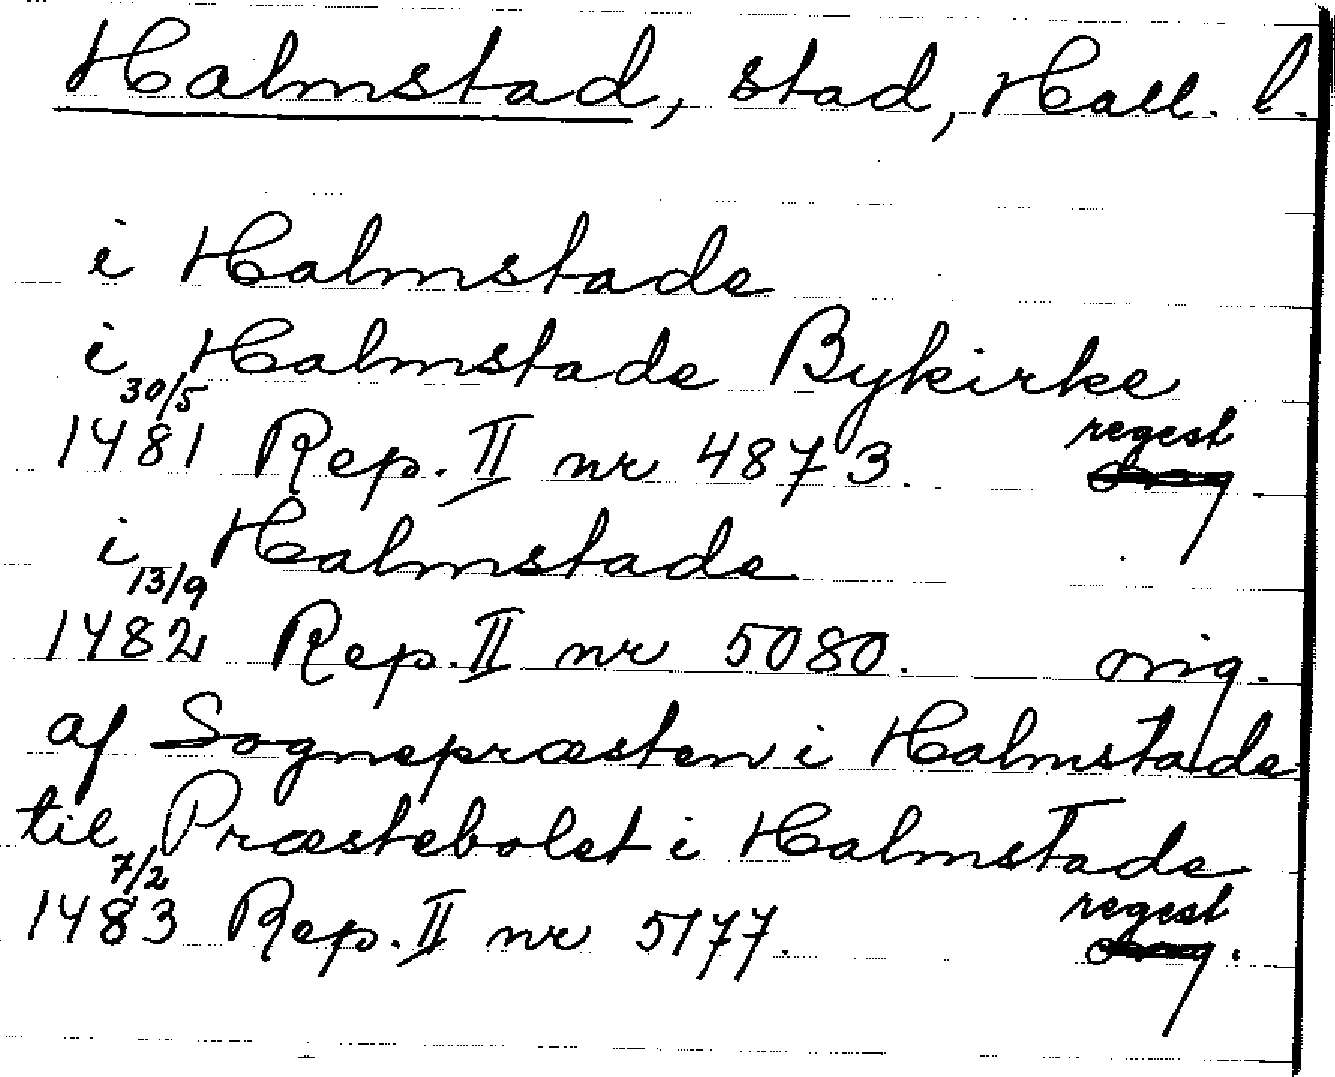 Halmstad, stad, Hall. l.
i Halmstade
i Halmstade Bykirke
30/5
1481 Rep. II nr 4873. regest
i Halmstade
13/9
1482 Rep. II nr 5080. orig.
af Sognepræsten i Halmstade
til Præstebolet i Halmstade
7/2
1483 Rep. II nr 5177. regest